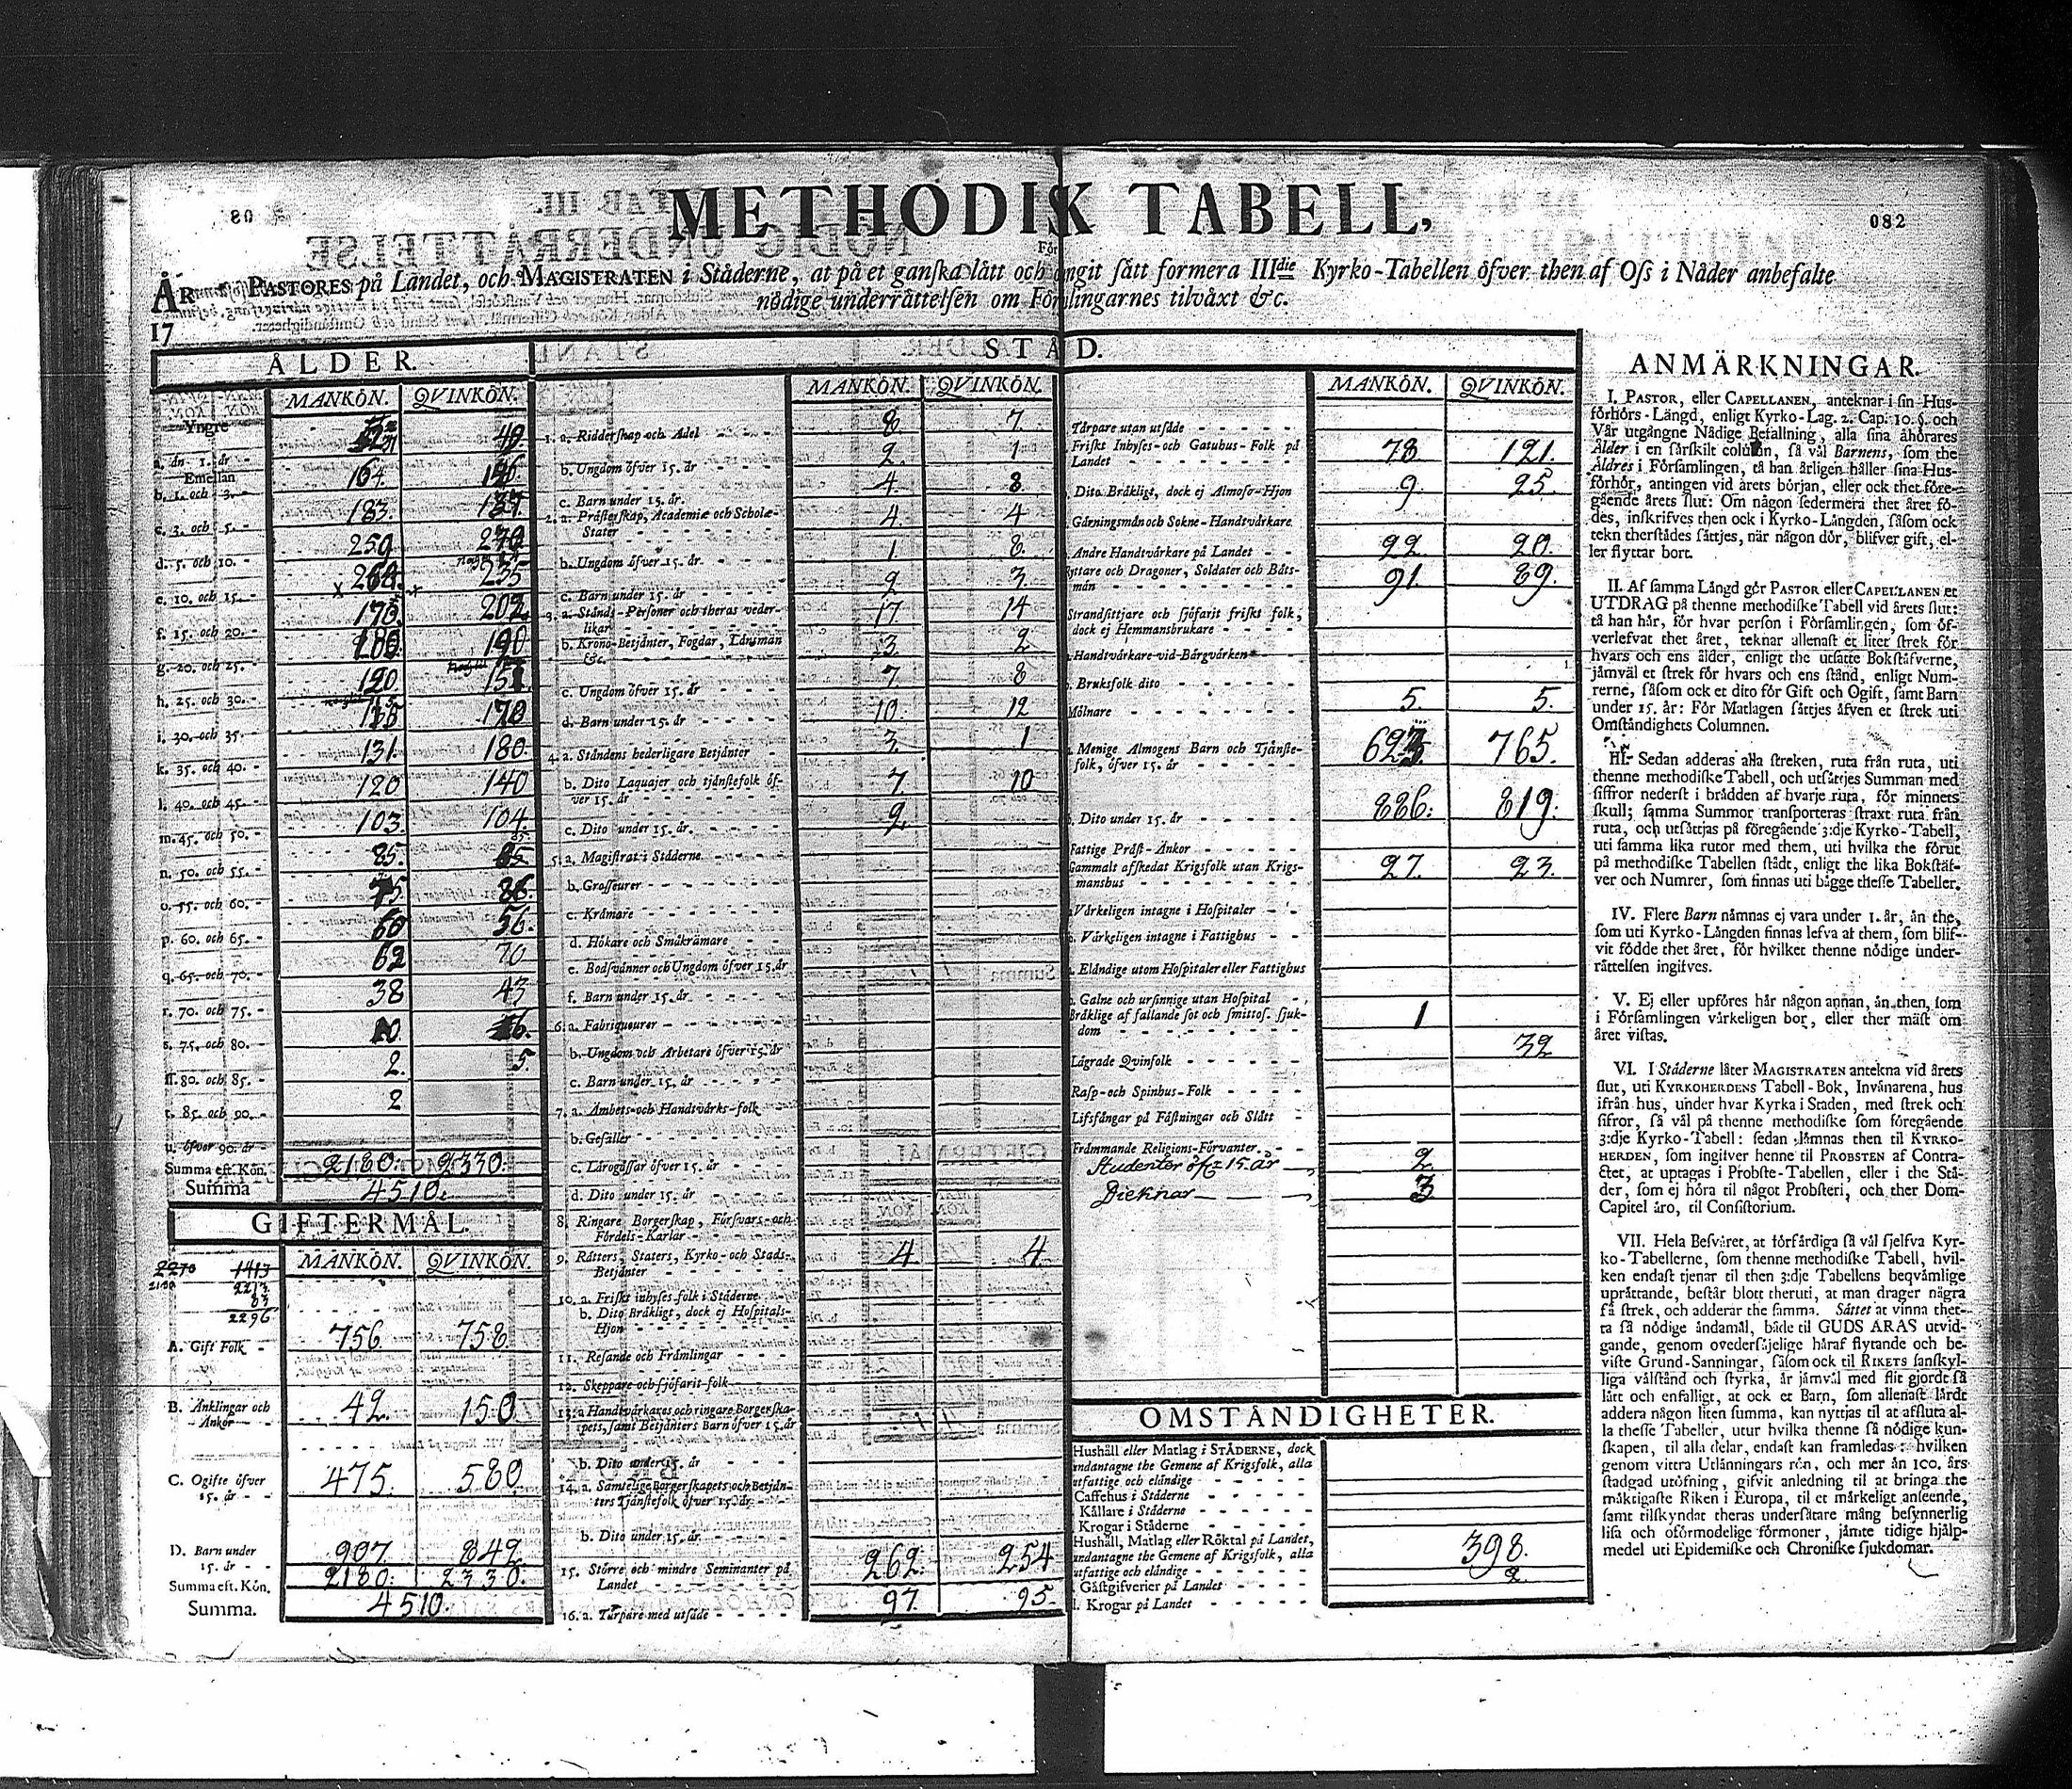 80
082
METHODISK TABELL,
För
PASTORES på Landet, och MAGISTRATEN i Städerne, at på et ganska lått och ångit sått formera IIIdie Kyrko-Tabellen öfver then af Oss i Nåder anbefalte
nödige underråttelsen om Församlingarnes tilvåxt &c.
ÅR
17
ÅLDER.
MANKÖN. QVINKÖN.
Yngre
a. ån 1. år 49
Emellan
b. 1. och 3. 164.
c. 3. och 5. 183. 187.
d. 5. och 10. 259. 270.
e. 10. och 15. 264. 235
f. 15. och 20. 202.
g. 20. och 25. 180. 190
h. 25. och 30. 120 151.
i. 30. och 35. 170
k. 35. och 40. 131. 180.
l. 40. och 45. 120 140
m. 45. och 50. 103. 104
n. 50. och 55. 85. 85.
o. 55. och 60. 75 86.
p. 60. och 65. 60 56.
q. 65. och 70. 62 70
r. 70. och 75. 38 43
s. 75. och 80.
ſſ. 80. och 85. 2. 5
t. 85. och 90. 2
u. öfver 90. år
Summa eft. Kön. 2180. 2330.
Summa 4510.
GIFTERMÅL.
MANKÖN. QVINKÖN.
2270 1413
2180 2213
83
2296
A. Gift Folk 756. 758.
B. Änklingar och
Änkor 42. 150
C. Ogifte öfver
15. år 475. 580.
D. Barn under
15. år 907. 842.
Summa eft. Kön. 2180. 2330.
Summa. 4510.
STÅND.
MANKÖN. QVINKÖN.
1. a. Ridderskap och Adel 8. 7.
b. Ungdom öfver 15. år 2. 1
c. Barn under 15. år. 4. 8.
2. a. Pråsterskap, Academiæ och Scholæ-
Stater 4. 4
b. Ungdom öfver 15. år. 1. 8.
c. Barn under 15. år 9. 3.
3. a. Stånds-Personer och theras veder-
likar 17 14
b. Krono-Betjånter, Fogdar, Lånsmån
&c. 3. 2
c. Ungdom öfver 15. år 7 8
d. Barn under 15. år 10. 12
4. a. Ståndens hederligare Betjånter 3. 1
b. Dito Laquajer och tjånstefolk öf-
ver 15. år 7. 10
c. Dito under 15. år. 2.
5. a. Magistrat i Ståderne
b. Grosseurer
c. Kråmare
d. Hökare och Småkråmare
e. Bodsvånner och Ungdom öfver 15. år
f. Barn under 15. år
6. a. Fabriqueurer
b. Ungdom och Arbetare öfver 15. år
c. Barn under 15. år
7. a. Åmbets- och Handtvårks-folk
b. Gesåller
c. Lårogåssar öfver 15. år
d. Dito under 15. år
8. Ringare Borgerskap, Försvars- och
Fördels-Karlar
9. Råtters, Staters, Kyrko- och Stads-
Betjånter 4. 4.
10. a. Friskt inhyses folk i Ståderne
b. Dito Bråkligt, dock ej Hospitals-
Hjon
11. Resande och Fråmlingar
12. Skeppare och sjöfarit folk
13. a Handtvårkares och ringare Borgerska-
pets, samt Betjånters Barn öfver 15. år
b. Dito under 15. år
14. a. Samtelige Borgerskapets och Betjån-
ters Tjånstefolk öfver 15. år
b. Dito under 15. år
15. Större och mindre Hemmanter på
Landet 262. 254
16. a. Torpare med utsåde 97. 95.
MANKÖN. QVINKÖN.
Torpare utan utsåde
Friskt Inhyses- och Gatuhus-Folk på
Landet 78 121.
Dito Bråkligt, dock ej Almoso-Hjon 9. 25.
Gårningsmån och Sokne-Handtvårkare
Andre Handtvårkare på Landet 22. 20.
Ryttare och Dragoner, Soldater och Båts-
mån 91. 89.
Strandsittjare och sjöfarit friskt folk,
dock ej Hemmansbrukare
Handtvårkare vid Bårgvårken
Bruksfolk dito
Mölnare 5. 5.
Menige Almogens Barn och Tjånste-
folk, öfver 15. år 623 765.
Dito under 15. år 886. 819.
Fattige Pråst-Ånkor
Gammalt afskedat Krigsfolk utan Krigs-
manshus 27. 23.
Vårkeligen intagne i Hospitaler
Vårkeligen intagne i Fattighus
Elåndige utom Hospitaler eller Fattighus
Galne och ursinnige utan Hospital
Bråklige af fallande sot och smittos. sjuk-
dom 1
Lågrade Qvinfolk 32
Rasp- och Spinhus-Folk
Lifsfångar på Fåstningar och Slått
Fråmmande Religions-Förvanter
Studenter öfr 15. år 2.
Dieknar 3
OMSTÅNDIGHETER.
Hushåll eller Matlag i STÅDERNE, dock
undantagne the Gemene af Krigsfolk, alla
utfattige och elåndige
Caffehus i Ståderne
Kållare i Ståderne
Krogar i Ståderne
Hushåll, Matlag eller Röktal på Landet,
undantagne the Gemene af Krigsfolk, alla
utfattige och elåndige 398.
Gåstgifverier på Landet 2
Krogar på Landet
ANMÄRKNINGAR.
I. PASTOR, eller CAPELLANEN, anteknar i sin Hus-
förhörs-Långd, enligt Kyrko-Lag. 2. Cap. 10. §. och
Vår utgångne Nådige Befallning, alla sina åhörares
Ålder i en sårskilt column, så vål Barnens, som the
Åldres i Församlingen, tå han årligen håller sina Hus-
förhör, antingen vid årets början, eller ock thet före-
gående årets slut: Om någon sedermera thet året fö-
des, inskrifves then ock i Kyrko-Långden, såsom ock
tekn therstådes såttjes, når någon dör, blifver gift, el-
ler flyttar bort.
II. Af samma Långd gör PASTOR eller CAPELLANEN et
UTDRAG på thenne methodiske Tabell vid årets slut:
tå han hår, för hvar person i Församlingen, som öf-
verlefvat thet året, teknar allenast et litet strek för
hvars och ens ålder, enligt the utsatte Bokståfverne,
jåmvål et strek för hvars och ens stånd, enligt Num-
rerne, såsom ock et dito för Gift och Ogift, samt Barn
under 15. år: För Matlagen såttjes åfven et strek uti
Omståndighets Columnen.
III. Sedan adderas alla streken, ruta från ruta, uti
thenne methodiske Tabell, och utsåttjes Summan med
siffror nederst i brådden af hvarje ruta, för minnets
skull; samma Summor transporteras straxt ruta från
ruta, och utsåttjas på föregående 3:dje Kyrko-Tabell,
uti samma lika rutor med them, uti hvilka the förut
på methodiske Tabellen stådt, enligt the lika Bokståf-
ver och Numrer, som finnas uti bågge thesse Tabeller.
IV. Flere Barn nåmnas ej vara under 1. år, ån the,
som uti Kyrko-Långden finnas lefva af them, som blif-
vit födde thet året, för hvilket thenne nödige under-
råttelsen ingifves.
V. Ej eller upföres hår någon annan, ån then, som
i Församlingen vårkeligen bor, eller ther måst om
året vistas.
VI. I Ståderne låter MAGISTRATEN antekna vid årets
slut, uti KYRKOHERDENS Tabell-Bok, Invånarena, hus
ifrån hus, under hvar Kyrka i Staden, med strek och
sifror, så vål på thenne methodiske som föregående
3:dje Kyrko-Tabell: sedan låmnas then til KYRKO-
HERDEN, som ingifver henne til PROBSTEN af Contra-
ctet, at uptagas i Probste-Tabellen, eller i the Stå-
der, som ej höra til något Probsteri, och ther Dom-
Capitel åro, til Consistorium.
VII. Hela Besvåret, at förfårdiga så vål sjelfva Kyr-
ko-Tabellerne, som thenne methodiske Tabell, hvil-
ken endast tjenar til then 3:dje Tabellens beqvåmlige
upråttande, består blott theruti, at man drager några
få strek, och adderar the samma. Såttet at vinna thet-
ta så nödige åndamål, både til GUDS ÅRAS utvid-
gande, genom ovedersåjelige håraf flytande och be-
viste Grund-Sanningar, såsom ock til RIKETS sanskyl-
liga vålstånd och styrka, år jåmvål med flit gjordt så
lått och enfalligt, at ock et Barn, som allenast lårdt
addera någon liten summa, kan nyttjas til at afsluta al-
la thesse Tabeller, utur hvilka thenne så nödige kun-
skapen, til alla delar, endast kan framledas: hvilken
genom vittra Utlånningars rön, och mer ån 100. års
stadgad utöfning, gifvit anledning til at bringa the
måktigaste Riken i Europa, til et mårkeligt anseende,
samt tilskyndat theras undersåtare mång besynnerlig
lisa och oförmodelige förmoner, jåmte tidige hjålp-
medel uti Epidemiske och Chroniske sjukdomar.